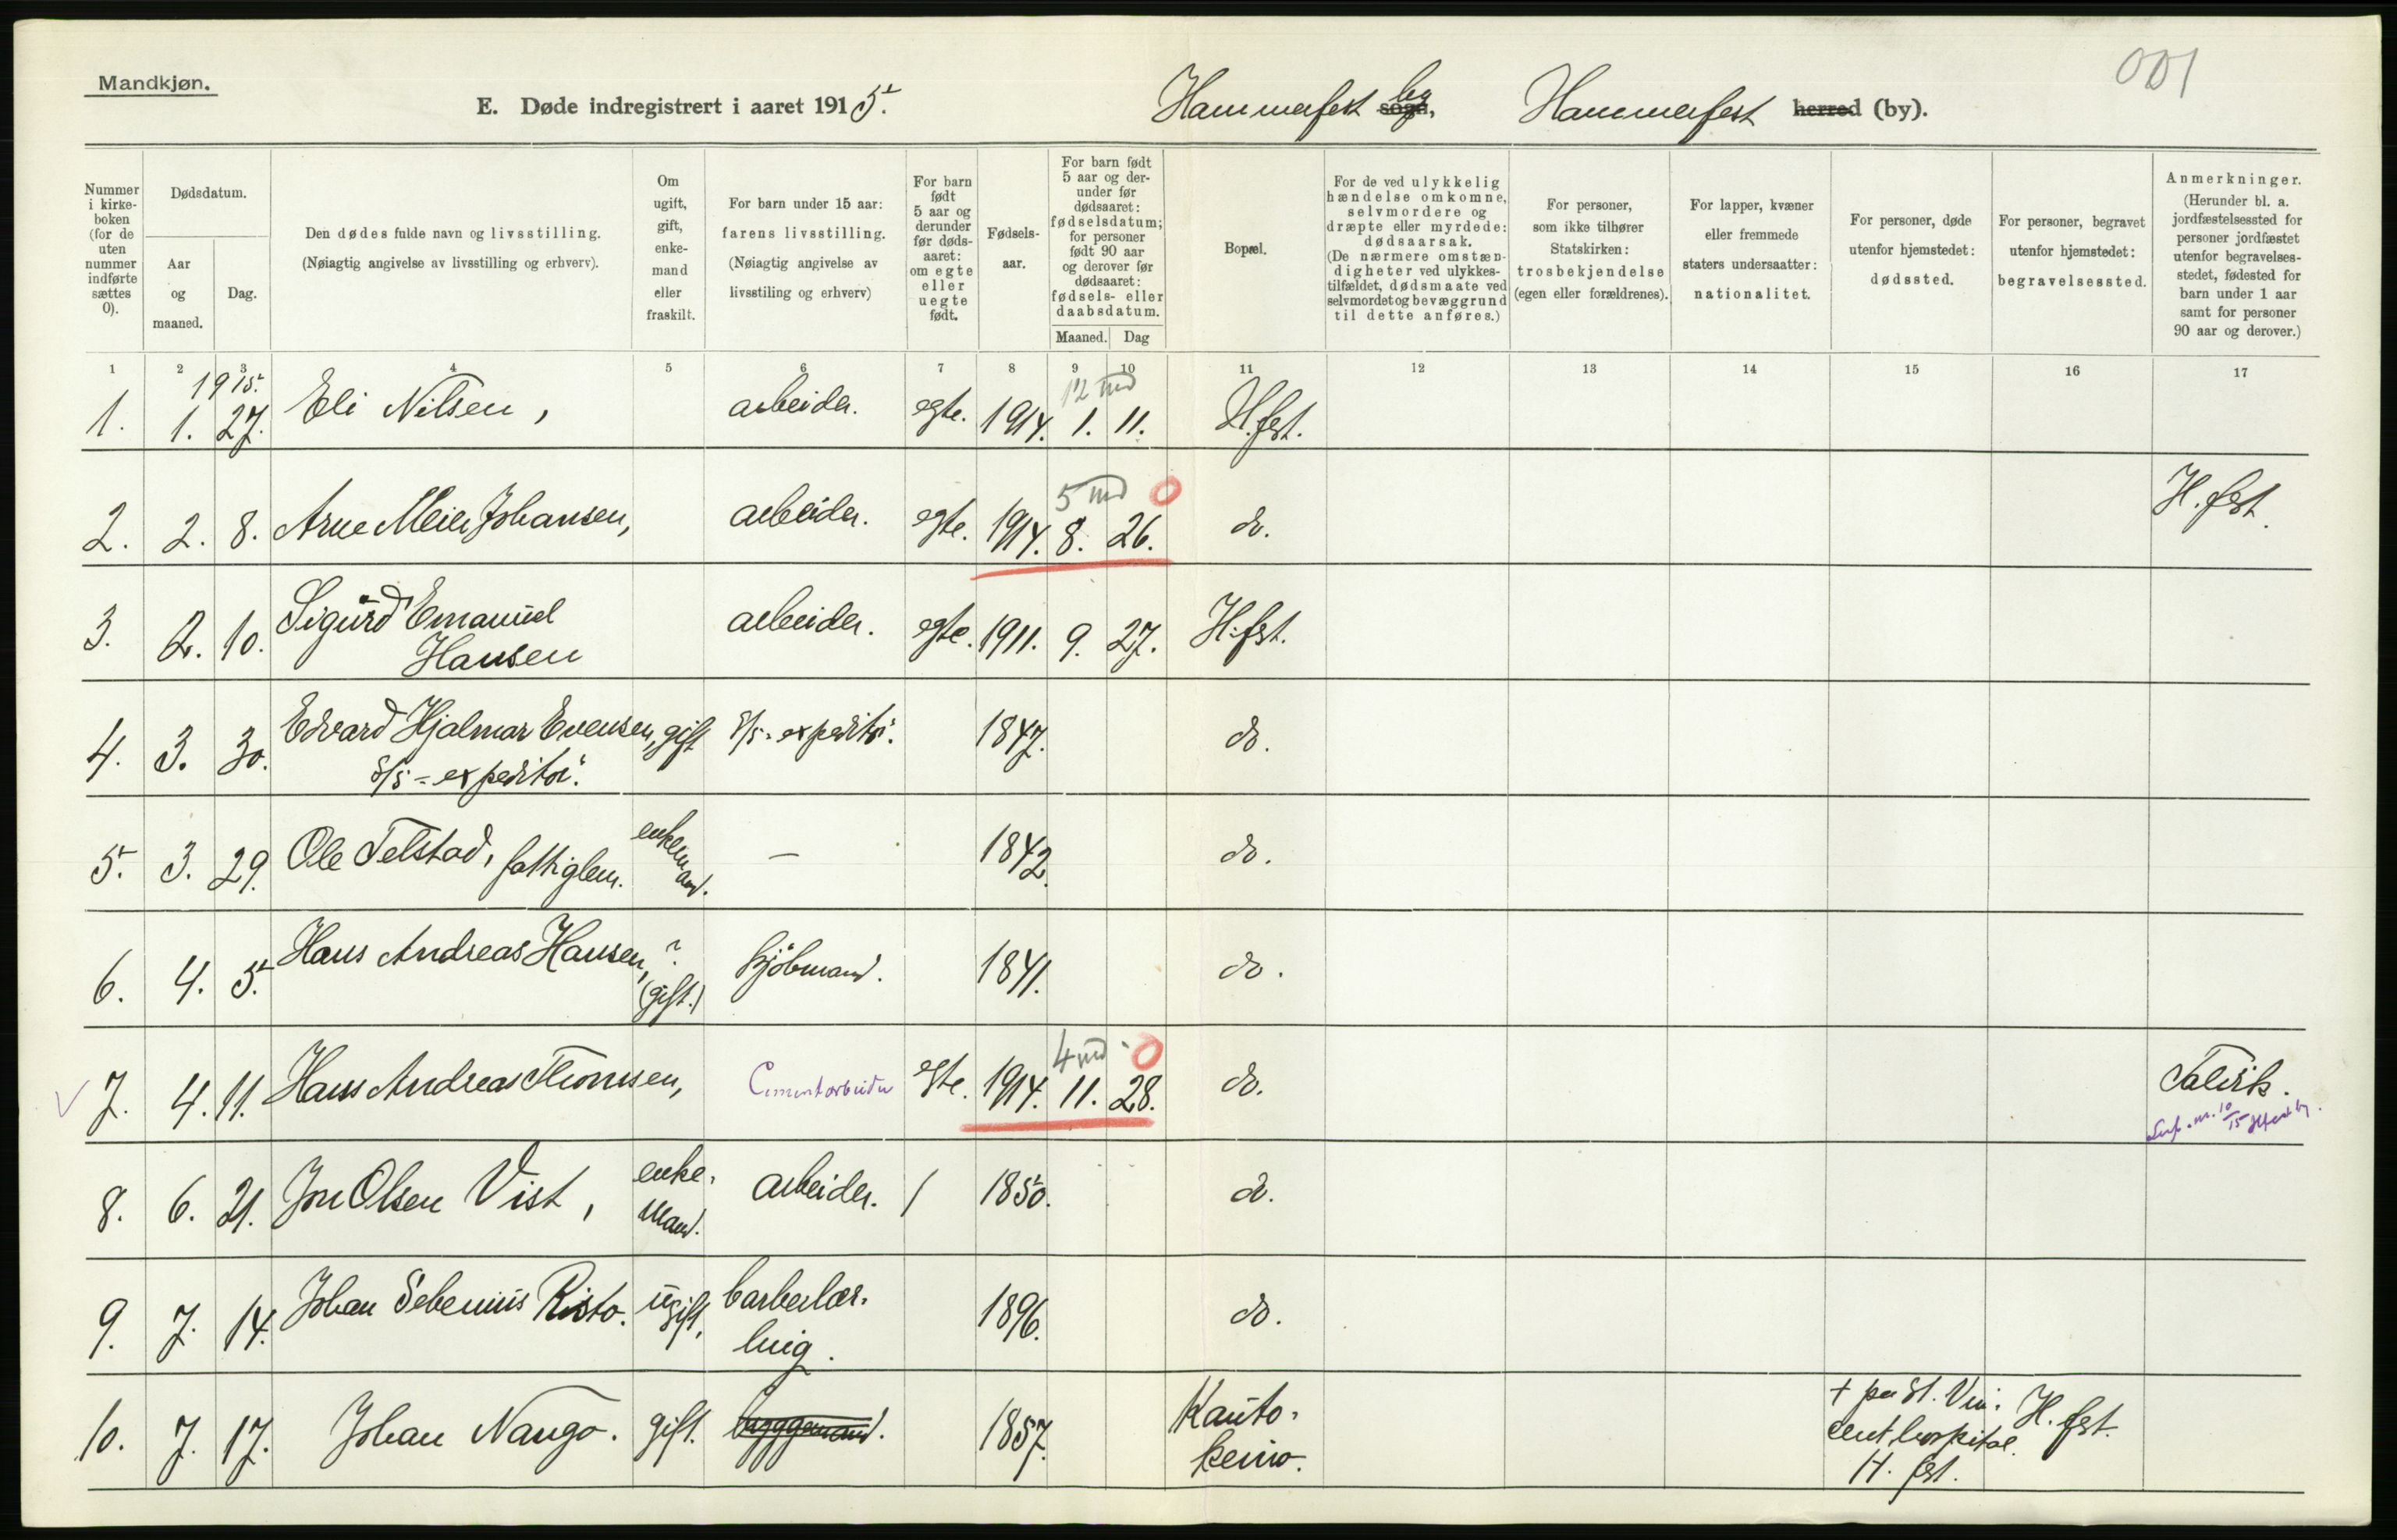 Mandkjøn.
001
E. Døde indregistrert i aaret 1915.
Hammerfest sogn, by Hammerfest herred (by).
Nummer i kirke-boken (for de uten nummer indførte sættes 0).
Dødsdatum.
Aar og maaned.
Dag.
Den dødes fulde navn og livsstilling.
(Nøiagtig angivelse av livsstilling og erhverv).
Om ugift, gift, enke-mand eller fraskilt.
For barn under 15 aar: farens livsstilling.
(Nøiagtig angivelse av livsstiling og erhverv)
For barn født 5 aar og derunder før døds-aaret: om egte eller uegte født.
Fødsels-aar.
For barn født 5 aar og der-under før dødsaaret: fødselsdatum; for personer født 90 aar og derover før dødsaaret: fødsels- eller daabsdatum.
Maaned. Dag
Bopæl.
For de ved ulykkelig hændelse omkomne, selvmordere og dræpte eller myrdede: dødsaarsak.
(De nærmere omstæn-digheter ved ulykkes-tilfældet, dødsmaate ved selvmordet og bevæggrund til dette anføres.)
For personer, som ikke tilhører Statskirken: trosbekjendelse (egen eller forældrenes).
For lapper, kvæner eller fremmede staters undersaatter: nationalitet.
For personer, døde utenfor hjemstedet: dødssted.
For personer, begravet utenfor hjemstedet: begravelsessted.
Anmerkninger.
(Herunder bl. a. jordfæstelsessted for personer jordfæstet utenfor begravelses-stedet, fødested for barn under 1 aar samt for personer 90 aar og derover.)
1 2 3 4 5 6 7 8 9 10 11 12 13 14 15 16 17
1915.
12 md
1. 1. 27. Eli Nilsen, arbeider. egte. 1914. 1. 11. H.fest.
5 md 0
2. 2. 8. Arne Meier Johansen, arbeider. egte. 1914. 8. 26. do. H.fest.
3. 2. 10. Sigurd Emanuel Hansen arbeider. egte. 1911. 9. 27. H.fest.
4. 3. 30. Edvard Hjalmar Evensen, gift S/S=expeditør. 1847. do.
S/S=expeditør.
5. 3. 29. Ole Telstad, fattiglem. enkemand. — 1842. do.
6. 4. 5. Hans Andreas Hansen, ? (gift.) kjöbmand. 1841. do.
4 md 0
7. 4. 11. Hans Andreas Thomsen, Cementarbeider egte. 1914. 11. 28. do. Talvik.
10/15
8. 6. 21. Jon Olsen Vist, enke-mand. arbeider. / 1850. do.
9. 7. 14. Johan Sebenius Risto. ugift. barberlær-ling. 1896. do.
10. 7. 17. Johan Nango. gift. byggemand. 1857. Kauto-keino. + paa St. Vin-cent hospital. H.fest. H.fest.